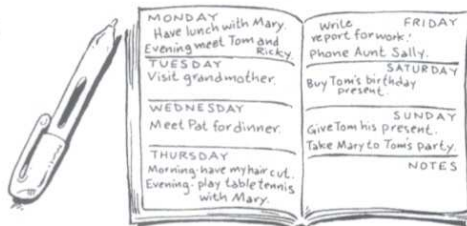 MONDAY
Have lunch with Mary.
Evening meet Tom and
Ricky.
TUESDAY
Visit grandmother.
WEDNESDAY
Meet Pat for dinner.
THURSDAY
Morning-have my hair cut.
Evening-play table tennis
with Mary.
FRIDAY
Write
report for work.
Phone Aunt Sally.
SATURDAY
Buy Tom's birthday
present.
SUNDAY
Give Tom his present.
Take Mary to Tom's party.
NOTES